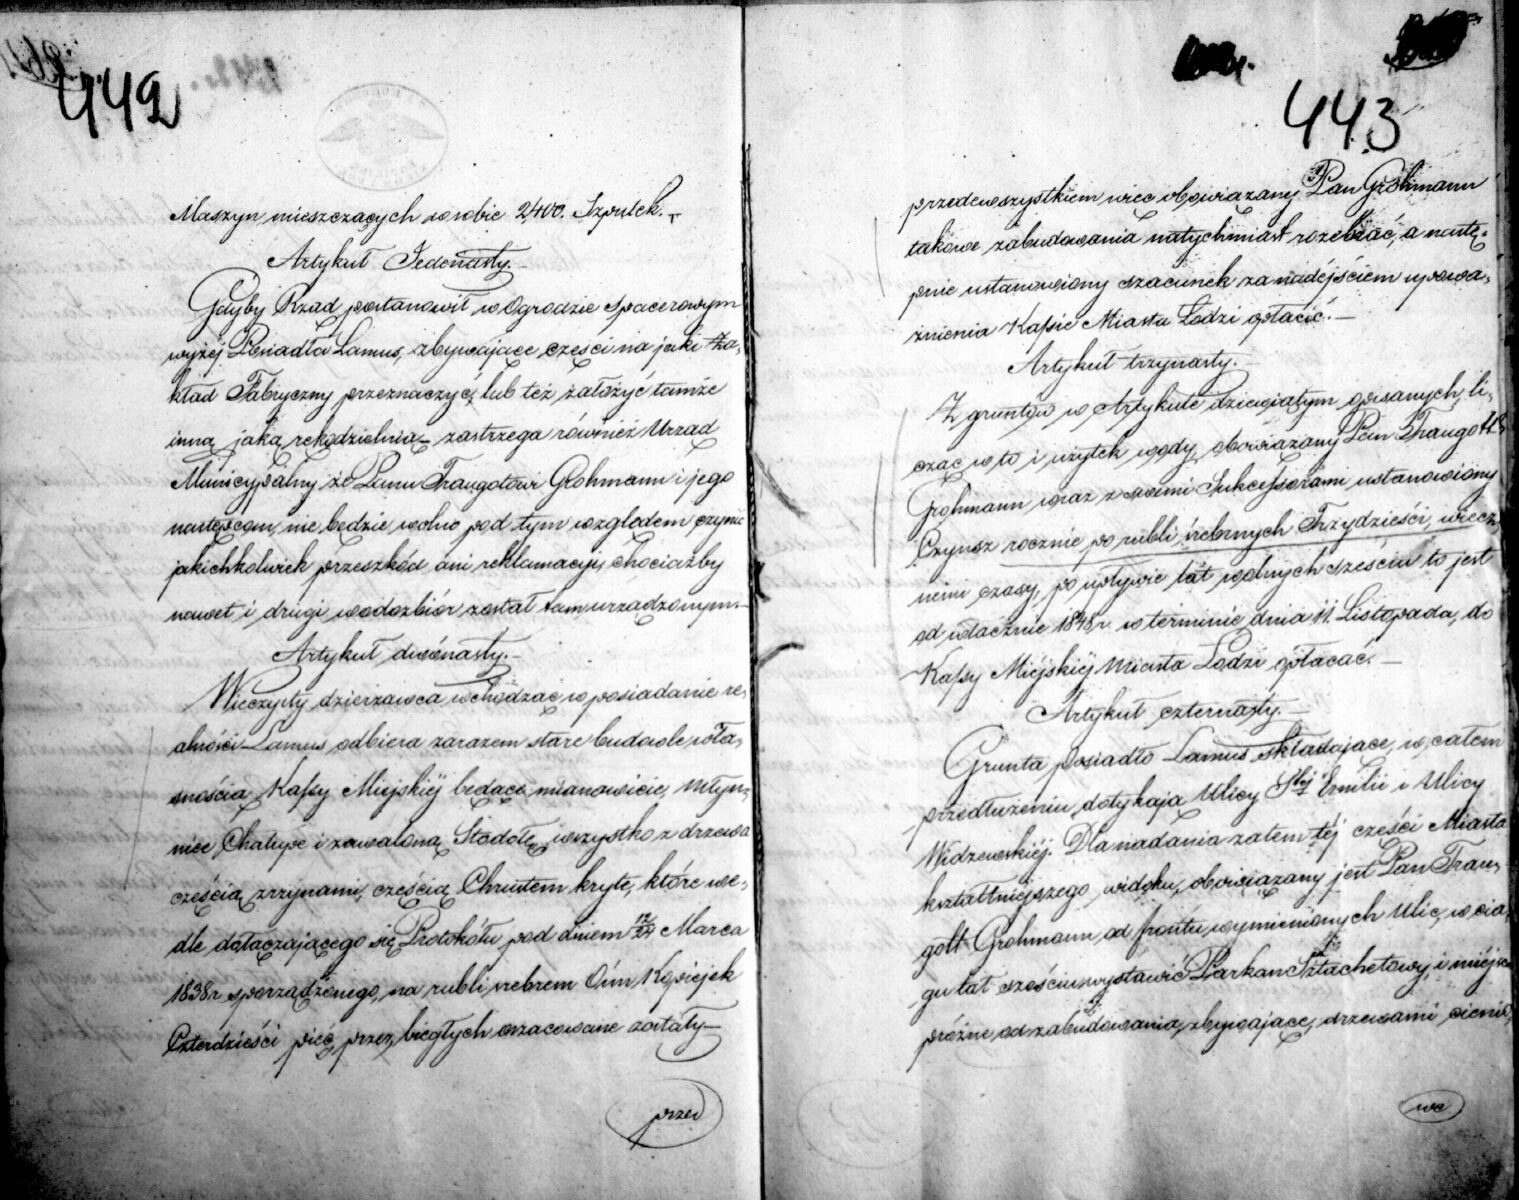 442
Maszyn mieszczących w sobie 2400. Szpulek.
Artykuł Jedenasty.
Gdyby Rząd postanowił w Ogrodzie Spacerowym
wyżéj Posiadła Lamus, zbywające części na jaki Za-
kład Fabryczny przeznaczyć, lub też założyć tamże
inną jaką rękodzielnią, zastrzega również Urząd
Municypalny że Panu Traugotowi Grohmann i jego
następcom, nie będzie wolno pod tym względem czynić
jakichkolwiek przeszkód ani reklamacyj, chociażby
nawet i drugi wodozbiór został tam urządzonym.
Artykuł dwónasty.
Wieczysty dzierzawca wchodząc w posiadanie re-
alności Lamus odbiera zarazem stare budowle wła-
snością Kassy Miejskiéj będące, mianowicie, Młyn,
nice Chałupe i zawaloną Stodołę, wszystko z drzewa
częścią zrzynami, częścią Chrustem kryte, które we-
dle dołączającego się Protokółu pod dniem 12/24 Marca
1838 r. sporządzonego, na rubli srebrem Ośm Kopiejek
Czterdzieści pięć przez biegłych oszacowane zostały
przed
443
przedewszystkiem więc obowiązany Pan Grohmann
takowe zabudowania natychmiast rozebrać, a nastę-
pnie ustanowiony szacunek za nadejściem upowa-
żnienia Kassie Miasta Łodzi opłacić.
Artykuł trzynasty.
Z gruntów w Artykule dziewiątym opisanych, li-
cząc w to i użytek wody, obowiązany Pan Traugott
Grohmann wraz z swemi Sukcessorami ustanowiony
Czynsz rocznie po rubli srebrnych Trzydzieści, wiecz
nemi czasy, po upływie lat wolnych sześciu to jest
od włącznie 1848 r. w terminie dnia 11. Listopada, do
Kassy Miéjskiéj Miasta Łodzi opłacać.
Artykuł czternasty.
Grunta posiadło Lamus składające, w całem
przedłużeniu dotykają Ulicy Stéj Emilii i Ulicy
Widzewskiéj. Dla nadania zatem téj części Miasta
kształtniejszego widoku, obowiązany jest Pan Trau-
gott Grohmann, od frontu wymienionych Ulic, w cią-
gu lat sześciu wystawić Parkan Sztachetowy, i miéjsca
próżne od zabudowania, zbywające, drzewami
we